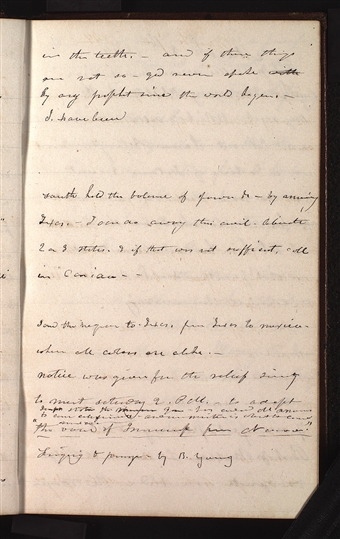 in the teeth. - and if these things
are not so - god never spoke
by any prophet since the world began. -
I have been
south hold the balance of power &c - by annexing
Texas. - I can do away this evil. liberate
2 or 3 states. & if that was not sufficient, call
in Canada - -
Send the negroes to Texas. from Texas to mexico -
where all colors are alike. -
notice was given for the relief society
to meet saturday 2. P.M. - to adopt
the voice of Innocence from Nauvoo"
Singing & prayer - by B. Young